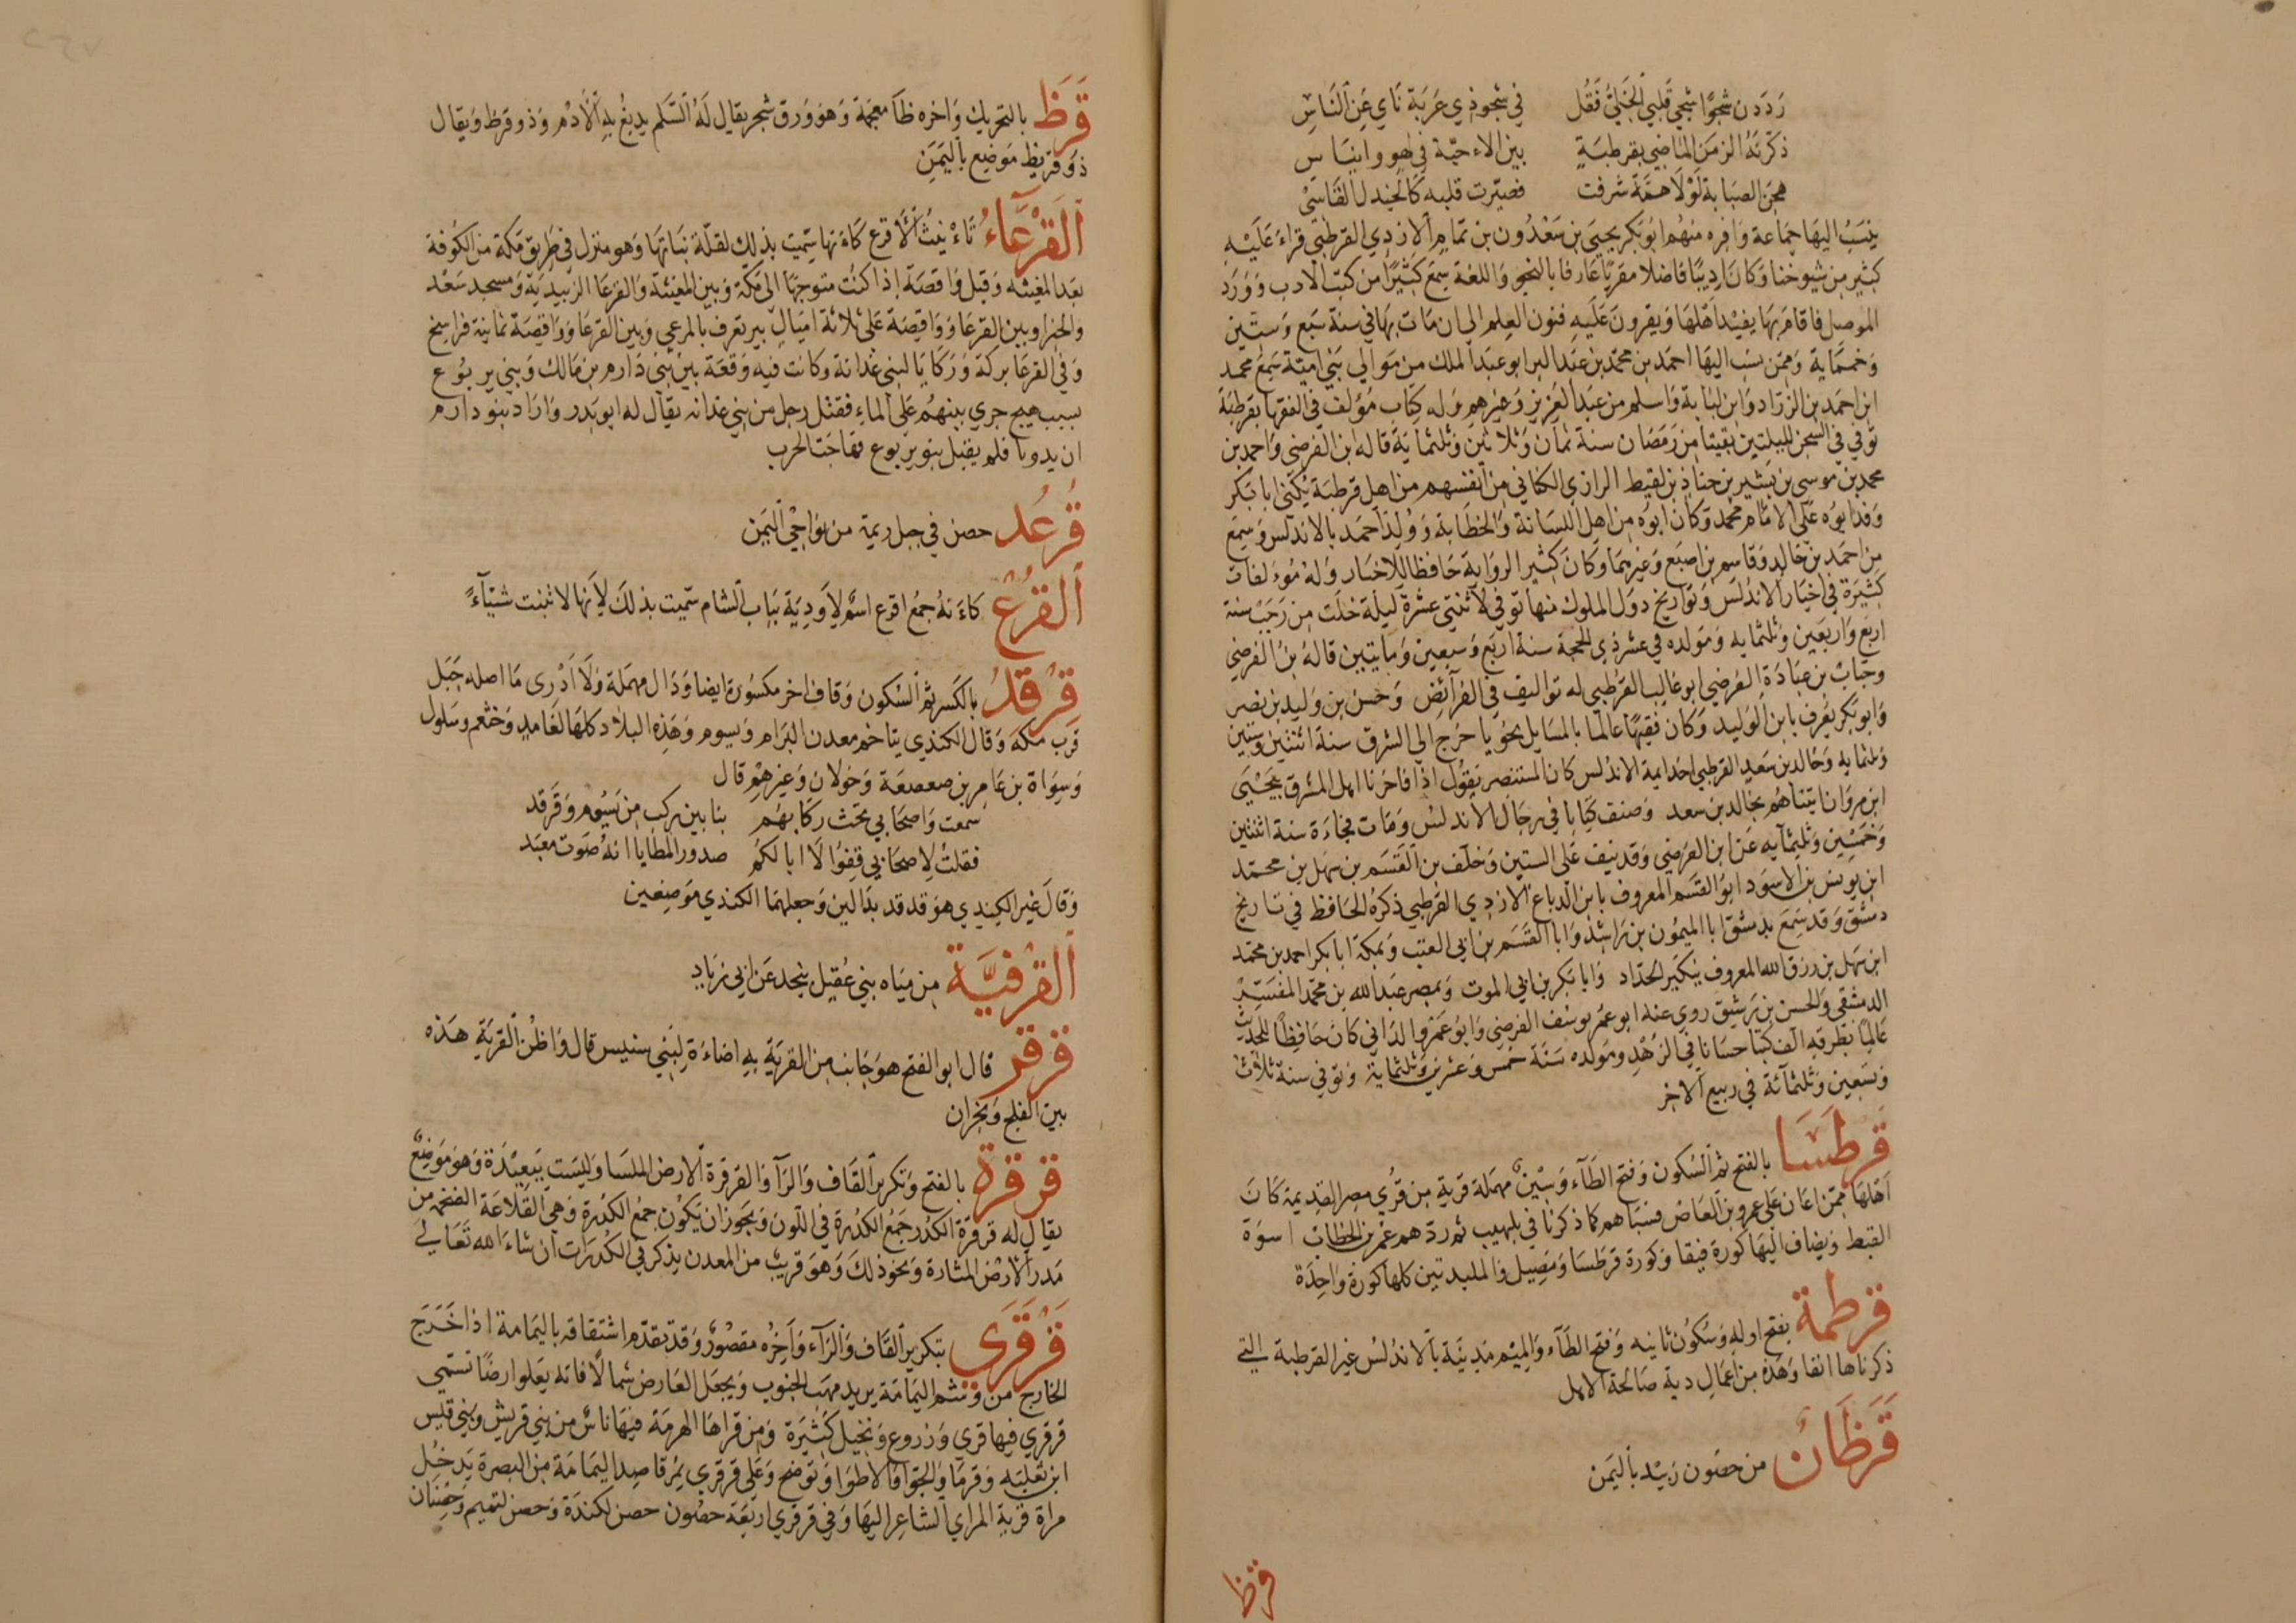 رَدَدن شجوًا شجي قلبي الخَليّ فَقُل في شجوذي غربة نَاي عَن النَاسِ
ذكرتَهُ الزمَن الماضي بقرطبةٍ بين الاءحبّة في لهو وايناسِ
هجن الصبَابة لولا همّة شرفت فصيّرت قلبه كالجندل القاسَي
ينسَبُ اليهَا جماعة وَافره منهُم ابُو بكر يحيىَ بن سَعْدُون بن تمام الازدِي القرطبي قراءَ عَليْه
كثير من شيوخنا وَكانَ اديبًا فاضلا مقريًا عَارفا بالنحو وَاللغة سمعَ كثيرًا من كتب الادب وَوَرَدَ
الموصل فاقامَ بهَا يفيْد اَهْلهَا وَيقرونَ عَلَيهِ فنون العِلم الي ان مَات بهَا في سنة سَبع وَستين
وَخمسماية وَممّن نسب اليهَا احمَد بن محمّد بن عَبد البر ابو عبَد الملك من مَوالي بَني اميّة سَمِعَ محمد
ابن احمَد بن الزرّاد وَابن لبَابة وَاسلم من عَبد العَزيز وَغيرهم وَله كتاب مُؤلف في الفقهَا بقرطبة
توفي في السّجن لليلتين بقيتا من رَمضان سنة ثمان وَثلاثين وَثلثماية قاله ابن الفرضي وَاحمد بن
محمد بن موسي بن بَشير بن حناذ بن لقيط الرازي الكناني من انفسهم من اهل قرطبة يُكنى ابا بَكر
وَفد ابوُه عَلى الامَام محمّد وَكانَ ابوُه من اهل اللسَانة وَالخطَابة وَوُلدَ احمَد بالاندلس وَسمع
من احمَد بن خالد وَقاسم بن اصبَع وَغيرهمَا وَكانَ كثير الروَاية حَافظا للاخبَار وَلهُ مُوءلفات
كَثيرَة في اخبَار الاندَلس وَتوَاريخ دوَل الملوك منهَا توفي لاثنتي عشرة ليلة خلَت من رَجَبْ سنة
اربَع وَاربَعين وَثلثمايه وَمَولده في عشر ذي الحجة سنة اربَع وَسَبعينَ وَمَايتين قالهُ بنُ الفرضي
وحبَابُ بن عبَادَة الفرضي ابو غالب القرَطبي له تواليف في الفرآئض وَحسَن بن وَليد بن نصر
وَابو بَكر يُعرف بابن الوَليد وَكانَ فقيهًا عَالما بالمسَايل نحوُيا خرَج الي الشرق سنة اثنتين وَستين
وَثلثمايه وَخالد بن سَعيد القرطبي احد ايمة الاندلس كان المستنصر يَقوُل اذا فاخرَنا اهل المشرق بيَحيْيَ
ابن مروَان ايتناهُم بخالد بن سعد وَصنف كتابا في رجَال الاندلسُ وَمَات فجاءَة سنة اثنتين
وَخمسين وَثلثمآيه عَن ابن الفرضي وَقد نيف عَلى الستين وَخلف بن القسَم بن سَهل بن محمّد
ابن يونس بن الاسوَد ابوُ القسم المعروف بابن الدبّاع الازدي القرطبي ذكرهُ الحَافظ في تَاريخ
دمشق وَقد سَمِعَ بدمشق ابا الميمُون بن رَاشد وَابا القسَم بن ابي العقب وَبمكة ابا بكر احمد بن محمّد
ابن سَهل بن رزق الله المعروف ببكير الحدّاد وَابا بَكر بن ابي الموت وَبمصر عَبد الله بن محمّد المفسّر
الدمشقي وَالحسن بن رَشيق روي عنه ابو عمَر يوسُف الفرضي وَابوُ عَمرو الدَاني كانَ حَافظًا للحَديث
عَالمًا بطرقه الف كتبا حسَانا في الزهد ومَولده سَنة خمس وَعشرين وَثلثماية وَتوفي سنة ثلاث
وَتسَعين وَثلثمآئة في ربيع الاخر
قرطَسَا بالفتح ثم السُكون وَفتح الطآء وَسينٌ مهمَلة قرية من قرُي مصر القديمَة كانَ
اَهلهَا ممّن اعَان عَلى عمرو بن العَاص فسبَاهم كما ذكرنا في بلهيب ثم ردّهم عمر بن الخطاب اسوَة
القبط وَيضاف اليْهَا كورة فيقا وَكورة قرَطسَا وَمصيل وَالمليدتين كلهاكورة وَاحِدَة
قرطمة بفتح اوله وَسُكُون ثانيه وَفتح الطآء وَالميْم مَديْنَة بالاندلسْ غير القرطبة التي
ذكرناها انفا وَهذه من اعمَال دية صَالحة الاهل
قَرَظَان من حصُون زبيْد باليمَن
قرظ
قَرَظ بالتحريك وَاخره ظآ معجمَة وَهو وَرق شجر يقال لهُ السَلم يدبغ به الاُدْم وَذو قرظ وَيقال
ذو قريظ مَوضِع باليمَنِ
اَلقَرْعَآءُ تَاءنيثُ الاقرع كاءَنها سمّيت بذلك لقلّة نبَاتهَا وَهو منزل في طريق مكّة من الكوُفة
بعَد المغيثه وَقبل وَاقصَة اِذا كنت متوجهًا الى مكة وَبين المغيثة وَالقرعَا الزبيديَة وَمسجد سَعْد
وَالخبرا وبين القرعَا وَوَاقصَة عَلى ثلاثة اميَال بير تعرف بالمرعي وَبين القرعَا وَوَاقصَة ثمانية فراسخ
وَفي القرعَا بركة وَرَكايَا لبني غدَانة وَكانت فيه وَقعَة بيْن بَني دَارم بن مَالك وَبني يربوُع
بسبب هيج جري بينهُم عَلى الماءِ فقتل رجل من بني غدَانه يقال له ابو بَدر وَارَادَ بنو دَارم
ان يدوا فلم يقبل بنو يربوع فهاجَت الحرب
قُرعُد حصن في جبل ريمَة من نوَاحْي اليَمن
اَلقُرْعُ كاءَنهُ جمعُ اقرع اسمٌ لاَودِيَة بَباب الشام سمّيت بذلك لأنها لا تنبت شيَآءً
قِرْقِدُ بالكسر ثم السُكون وَقاف اخر مكسُورة ايضا وَدَال مهمَلة وَلاَ اَدْرى مَا اصله جَبَل
قرَب مكّة وَقال الكندي يتاخم معدن البرَام وَيسوم وَهَذه البلاد كلهَا لغَامد وَخثعم وسَلول
وَسِوَاة بن عَامِر بن صعصعَة وَخولان وَغيرهمْ قال
سمعت وَاصحَابي تحث ركابهُم بنا بين ركب من يَسُوم وَقرقد
فقلتُ لاصحَابي قِفوُا لا ابا لكمُ صدور المطايا انهُ صَوت معَبَد
وَقالَ غير الكندِي هوَ قدقد بدَالين وَجعلهمَا الكندي مَوَضعين
اَلقُرفيَّة من ميَاه بني عُقيل بنجد عَن ابي زيَاد
قرقر قال ابو الفتح هوَ جَانب من القريَة به اضاءَة لبَني سنبس قال وَاظن القريَة هَذه
بين الفلج وَنجران
قرقرة بالفتح وَتكرير القَاف وَالرَآ وَالقرَقرة الارض الملسَا وَليسَت ببَعيْدَة وَهوَ مَوَضِعٌ
يقال له قرقرَة الكدر جَمعُ الكدرة في اللون وَيجوَز ان يَكوُن جمعُ الكدرة وَهي القلاعَة الضخمة من
مَدر الارض المثارة وَنحوذلك وَهو قريبٌ من المعدن يذكر في الكدرَات ان شاءَ الله تعَالي
قَرْقَرَي بتكرير القَاف وَالرَآء وَآخِرُه مقصُورٌ وَقدْ تقدّم اشتقاقه باليَمامة اذا خَرَجَ
الخارج من وشم اليَمامَة يريد مهبّ الجنوب وَيجعل العَارض شمالاً فانه يَعلو ارضًا تسمّي
قرقري فيها قري وَزروع وَنخيل كثيرَة وَمن قراهَا الهرمَة فيهَا ناسٌ من بني قريش وَبني قيْس
ابن ثعلبَه وَقرمَا وَالجوّا وَالاطوَا وَتوضح وَعَلي قرقري يمُرّ قاصِد اليَمامَة من البصرة يَدخُل
مراة قرية المراي الشاعِر اليهَا وَفي قرقري اربَعَة حصُون حصن لكندَة وَحصن لتميم وَحِصَنان